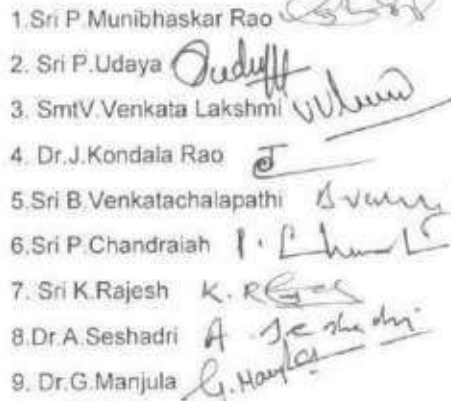 1.Sri P.Munibhaskar Rao
2. Sri P.Udaya
3. SmtV.Venkata Lakshmi
4. Dr.J.Kondala Rao J
5.Sri B.Venkatachalapathi
6.Sri P.Chandraiah
7. Sri K.Rajesh K.
8.Dr.A.Seshadri A. Seshadri
9. Dr.G.Manjula G. Manjula